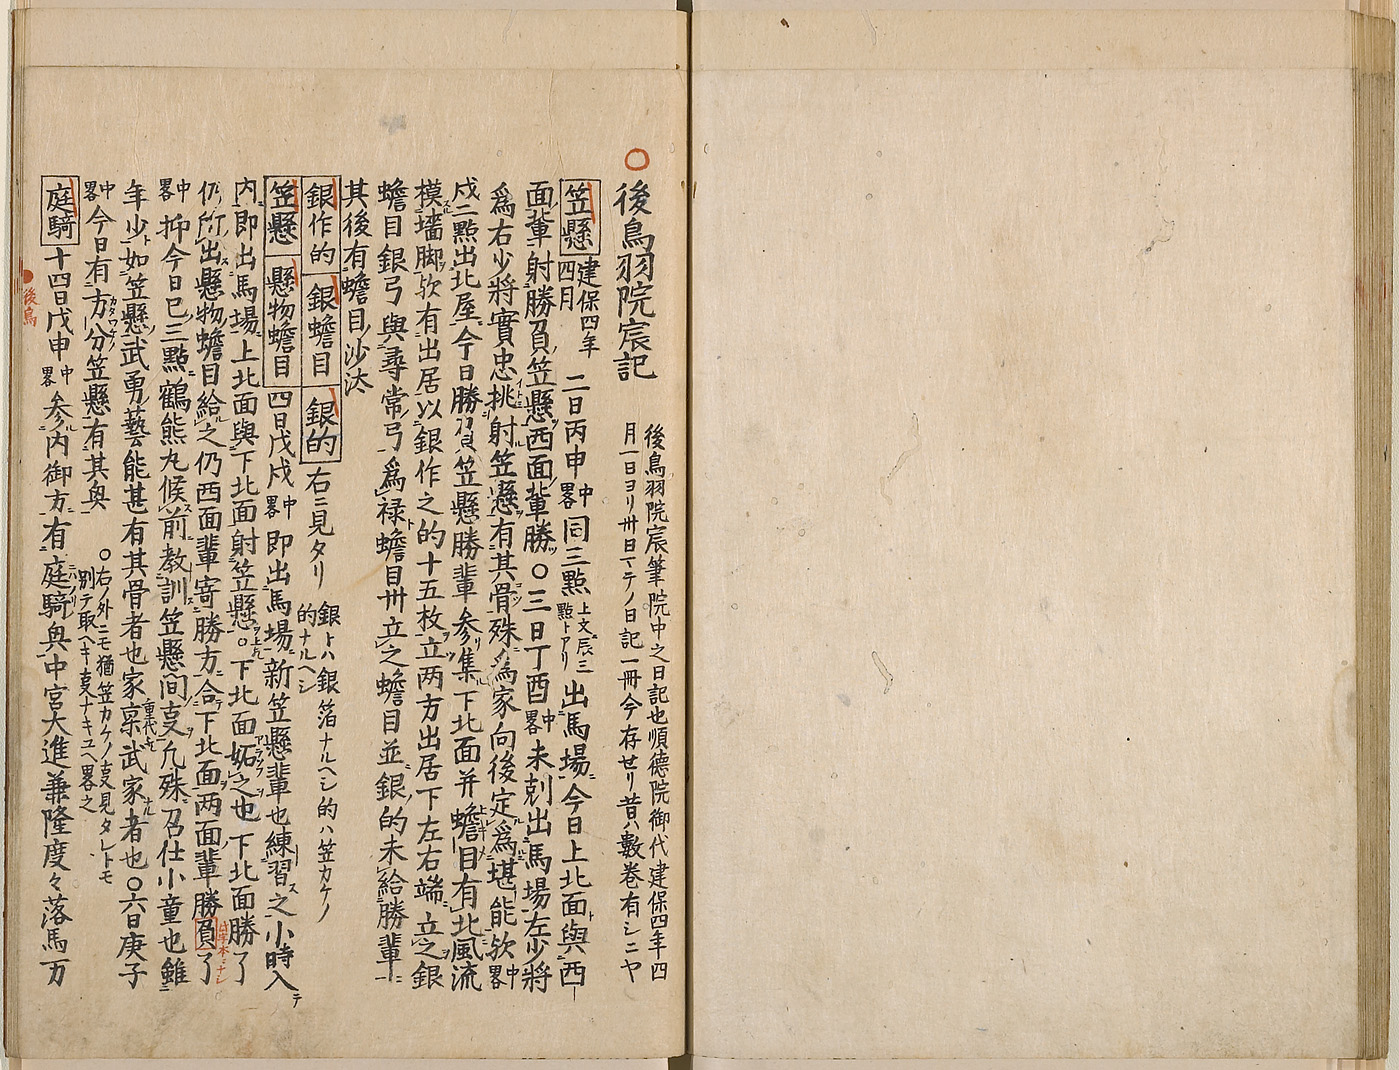 ○後鳥羽院宸記
後鳥羽院宸筆院中之日記也順德院御代建保四年四
月一日ヨリ卅日マテノ日記一冊今存せリ昔ハ數卷有シニヤ
笠懸 建保四年四月 二日丙申中畧同三點上文辰三點トアリ出馬場今日上北面與西
面輩射勝負笠懸西面輩勝○三日丁酉中畧未剋出馬場左少將
為右少將實忠挑射笠懸有其骨殊為家向後定為堪能欤中畧
戌二點出北屋今日勝負笠懸勝輩参集下北面并蟾目有北風流
模墻脚欤有出居以銀作之的十五枚立两方出居下左右端立之銀
蟾目銀弓與尋常弓為禄蟾目卅立之蟾目並銀的未給勝輩
其後有蟾目沙汰
銀作的 銀蟾目 銀的 右ニ見タリ 銀トハ銀箔ナルヘシ的ハ笠カケノ
的ナルヘシ
笠懸 懸物蟾目 四日戊戌中畧即出馬場新笠懸輩也練習之小時入
内即出馬場上北面與下北面射笠懸○下北面妬之也下北面勝了
仍所出懸物蟾目給之仍西面輩寄勝方合下北面两面輩勝負了
中畧抑今日巳三點鶴熊丸候前教訓笠懸間支凢殊召仕小童也雖
年少如笠懸武勇藝能甚有其骨者也家稟武家者也○六日庚子
中畧今日有方分笠懸有其與 ○右ノ外ニモ猶笠カケノ支見タレトモ
別テ取ヘキ支ナキユヘ畧之
庭騎 十四日戊申中畧参内御方有庭騎與中宮大進兼隆度々落馬万
後鳥